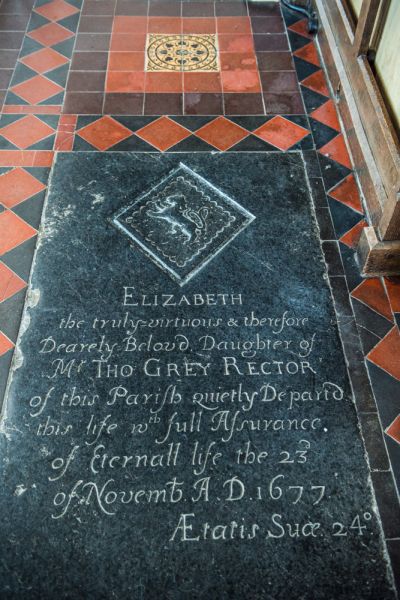 ELIZABETH
the truly-virtuous & therefore
Dearely-Belovd Daughter of
Mr THO GREY RECTOR
of this Parish quietly Departd
this life wth full Assurance
of Eternall life the 23d
of Novemb. A.D. 1677
Ætatis Suæ 24º